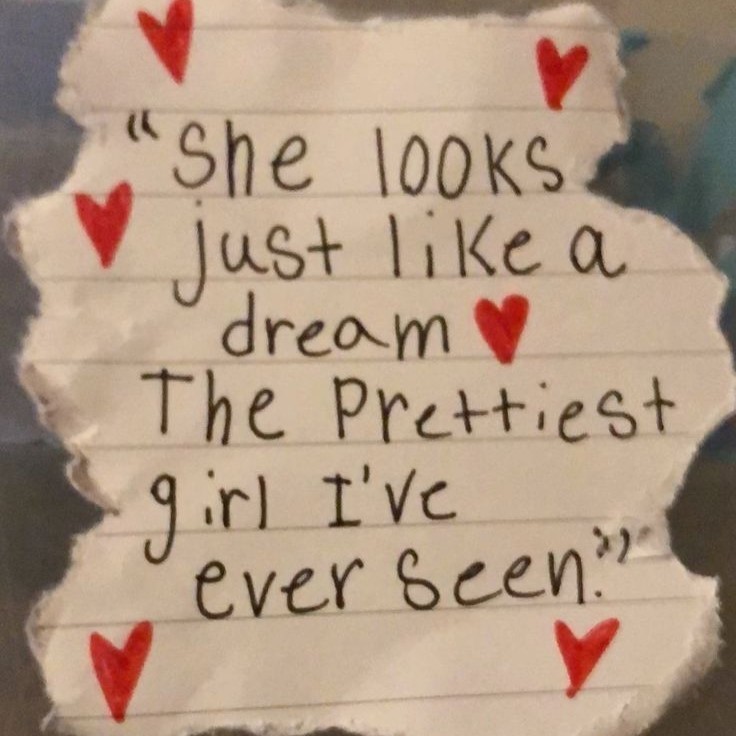 “She looks
just like a
dream
The Prettiest
girl I've
ever seen.”